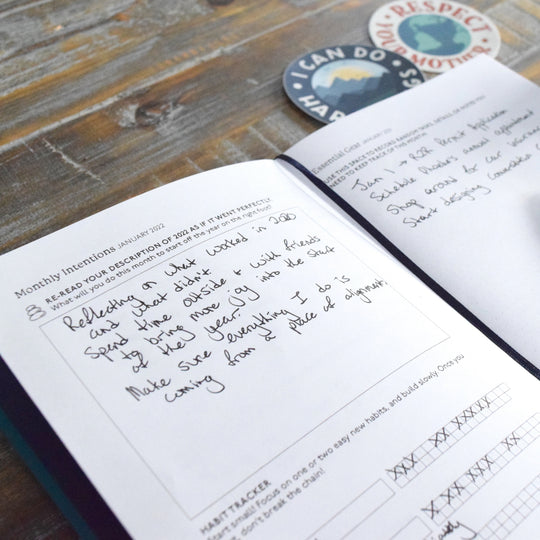 Monthly Intentions JANUARY 2022
RE-READ YOUR DESCRIPTION OF 2022 AS IF IT WENT PERFECTLY.
What will you do this month to start off the year on the right foot?
Reflecting on what worked in 2020
and what didn't.
Spend time outside + with friends
to bring more joy into the start
of the year.
Make sure everything I do is
coming from a place of alignment.
HABIT TRACKER
Start small! Focus on one or two easy new habits, and build slowly. Once you
don't break the chain!
Essential Gear JANUARY 2022
USE THIS SPACE TO RECORD RANDOM TASKS, DETAILS, OR NOTES YOU
NEED TO KEEP TRACK OF THIS MONTH
Jan 1 → R2R Permit Application
Schedule annual appointment
Shop around for car insurance
Start designing
I CAN DO
HAR
GS
RESPECT
YOU
R MOTHER